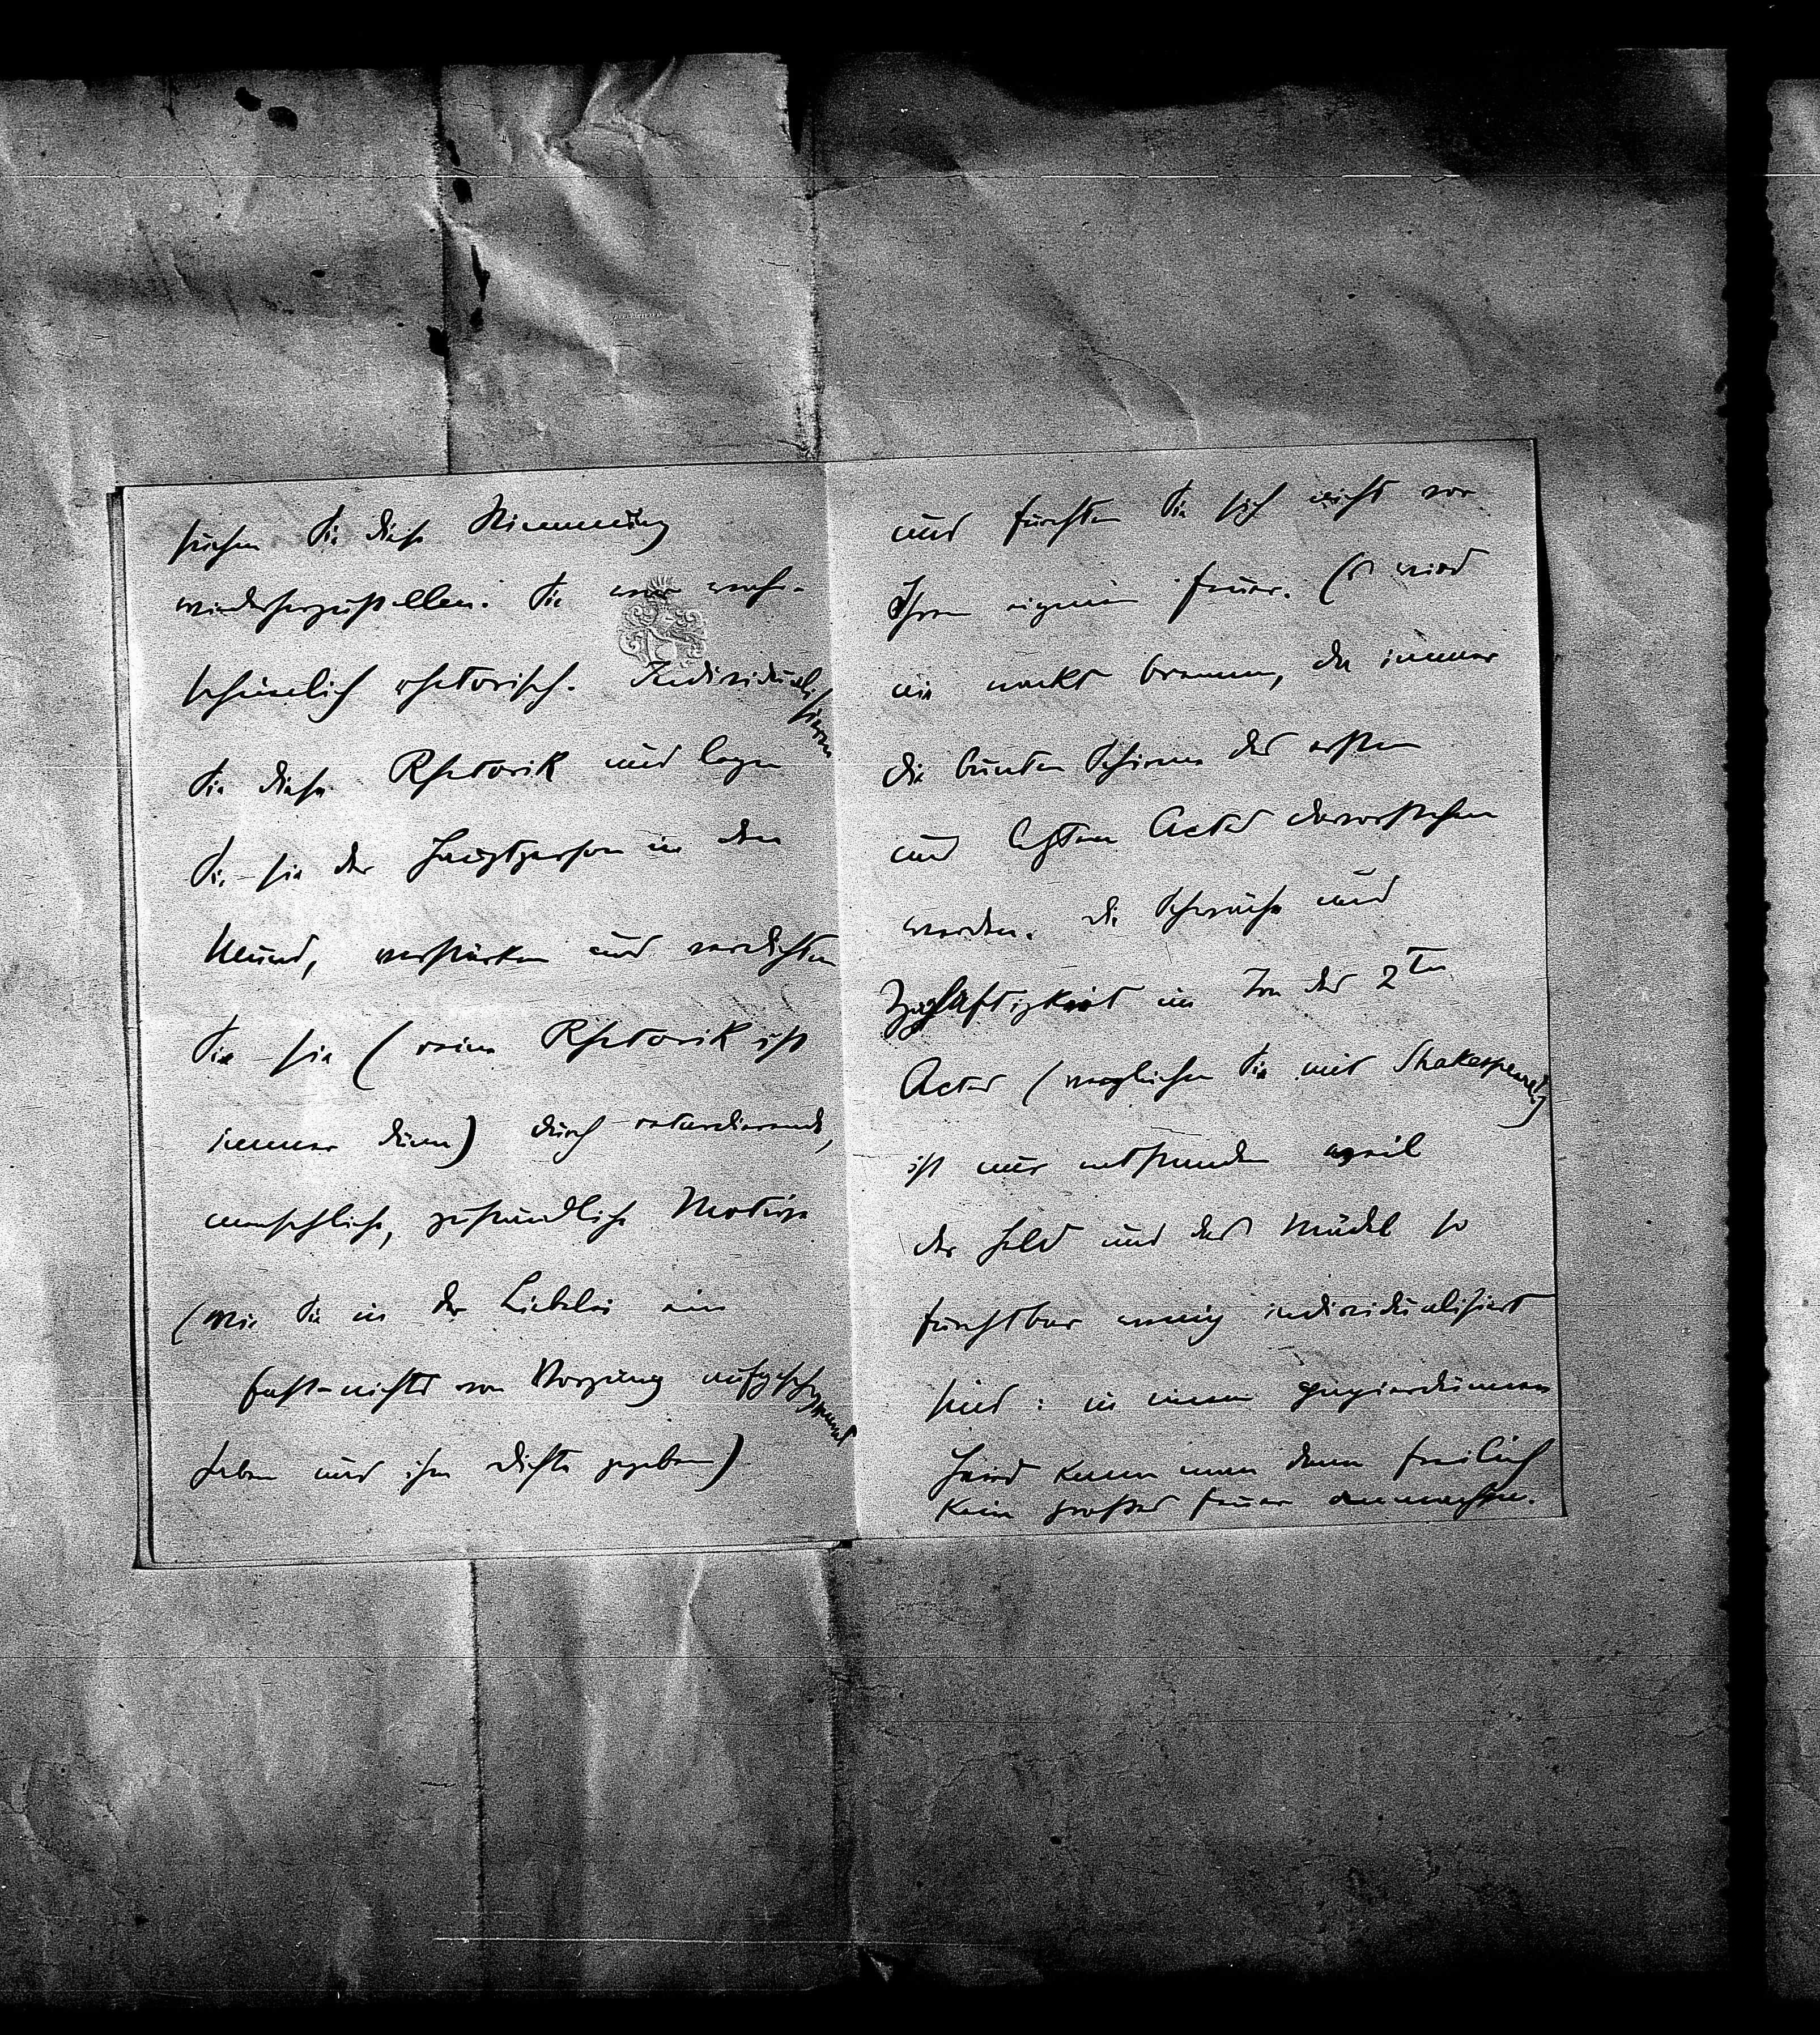 suchen Sie diese Stimmung
wiederherzustellen. Sie war wahr-
scheinlich rhetorisch. Individualisieren
Sie diese Rhetorik und legen
Sie sie der Hauptperson in den
Mund, verstärken und verdichten
Sie sie (reine Rhetorik ist
immer dünn) durch retardierende,
menschliche, zuständliche Motive
(wie Sie in der Liebelei ein
fast-nichts von Vorgang aufgeschwemmt
haben und ihm Dichte gegeben)
und fürchten Sie sich nicht vor
Ihrem eigenen Feuer. Es wird
nie nackt brennen, da immer
die bunten Schirme des ersten
und letzten Actes davorstehen
werden. Die Schwäche und
Zaghaftigkeit im Ton des 2ten
Actes (vergleichen Sie mit Shakespeare!)
ist nur entstanden weil
der Held und das Mädel so
furchtbar wenig individualisiert
sind: in einem papierdünnen
Herd kann man dann freilich
kein großes Feuer anmachen.